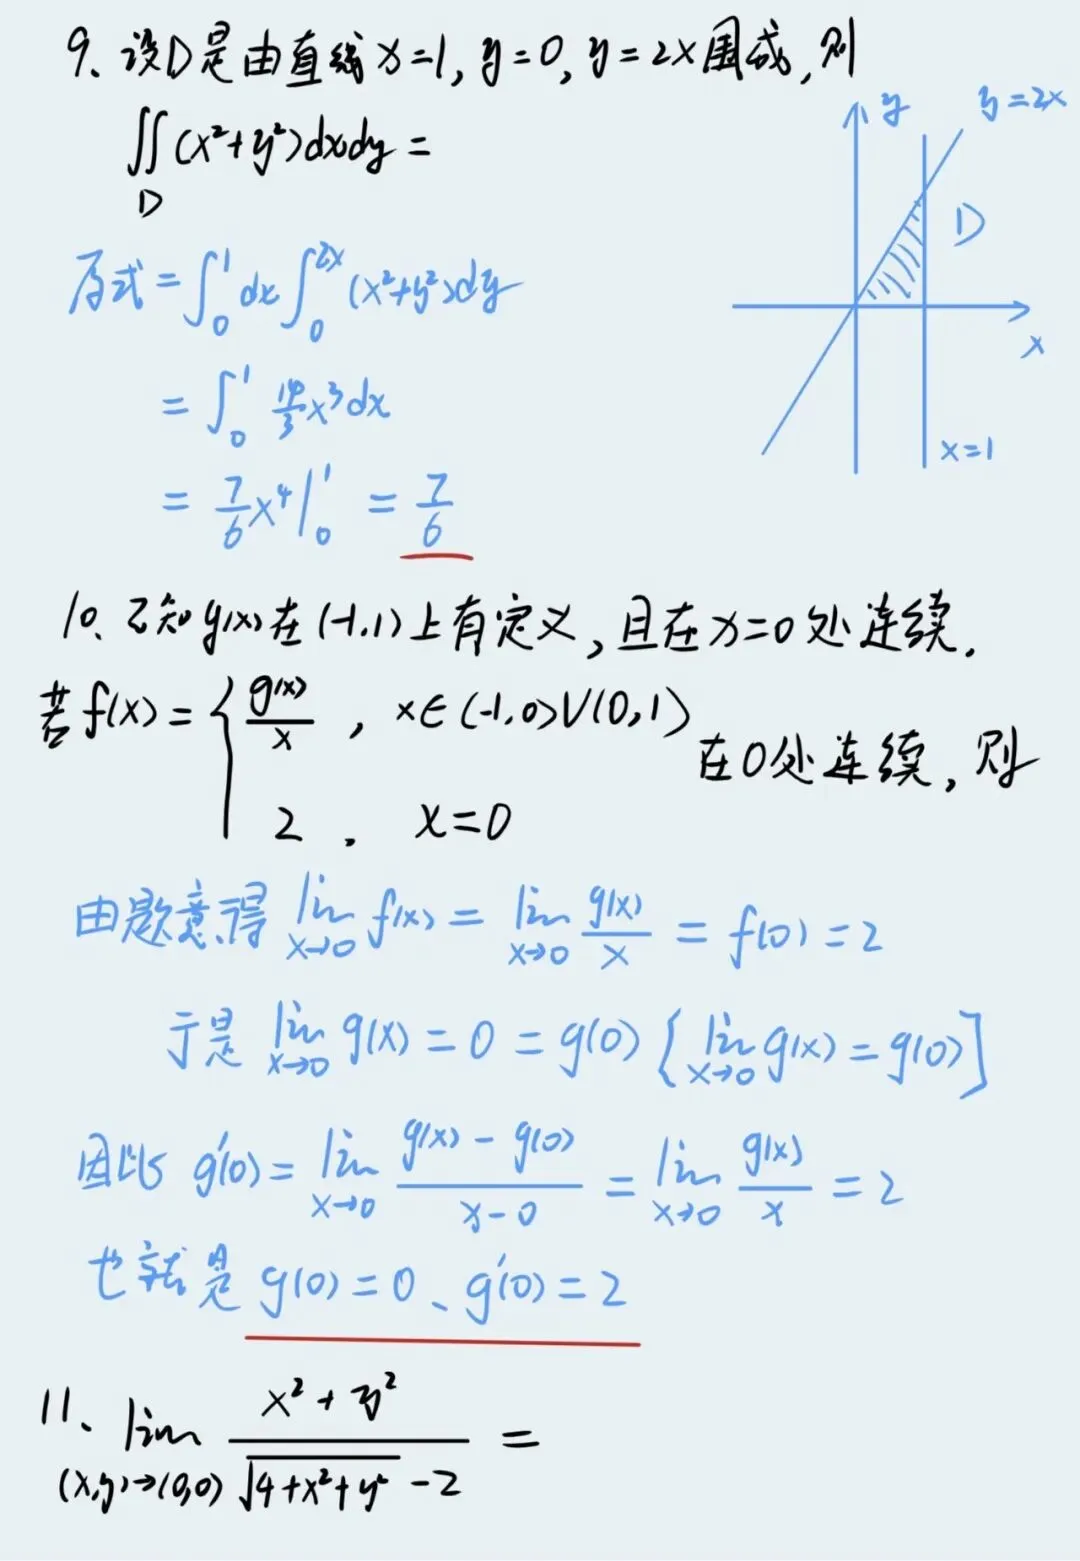 9、设D是由直线x=1, y=0, y=2x围成,则
∬(x²+y²)dxdy=
D
y
y=2x
D
x
x=1
原式=∫₀¹dx∫₀²ˣ(x²+y²)dy
=∫₀¹ 14/3 x³dx
=7/6 x⁴|₀¹ = 7/6
10、已知g(x)在(-1,1)上有定义,且在x=0处连续.
若f(x)={ g(x)/x , x∈(-1,0)∪(0,1)
在0处连续,则
2 . x=0
由题意得 lim x→0 f(x) = lim x→0 g(x)/x = f(0) = 2
于是 lim x→0 g(x) = 0 = g(0) [lim x→0 g(x) = g(0)]
因此 g'(0) = lim x→0 (g(x)-g(0))/(x-0) = lim x→0 g(x)/x = 2
也就是 g(0)=0、g'(0)=2
11、lim (x,y)→(0,0) (x²+y²)/(√(4+x²+y²)-2) =